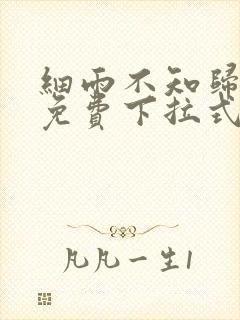 細雨不知歸
免費下拉式
凡凡一生1